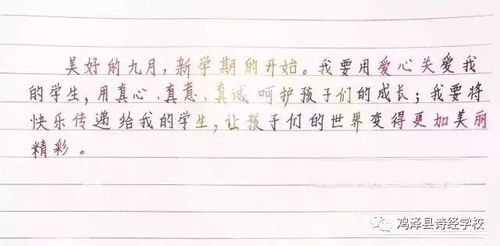 美好的九月，新学期的开始。我要用爱心关爱我
的学生，用真心、真意、真诚呵护孩子们的成长；我要将
快乐传递给我的学生，让孩子们的世界变得更加美丽
精彩。
鸡泽县诗经学校